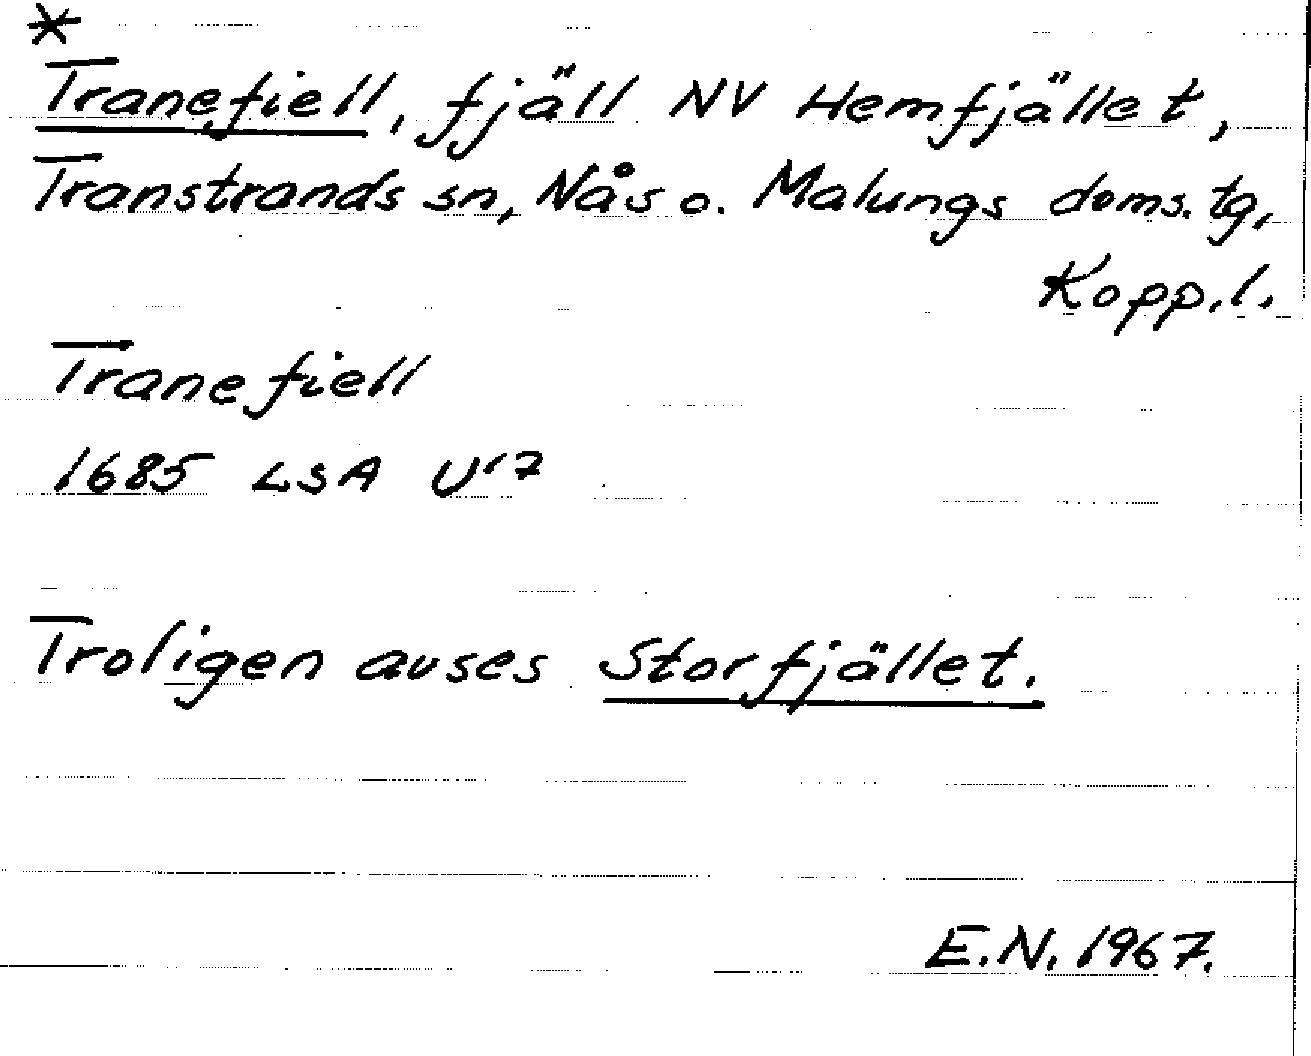 *
Tranefiell, fjäll NV Hemfjället,
Transtrands sn, Nås o. Malungs doms. tg,
Kopp.l.
Tranefiell
1685 LSA U17
Troligen avses Storfjället.
E.N. 1967.